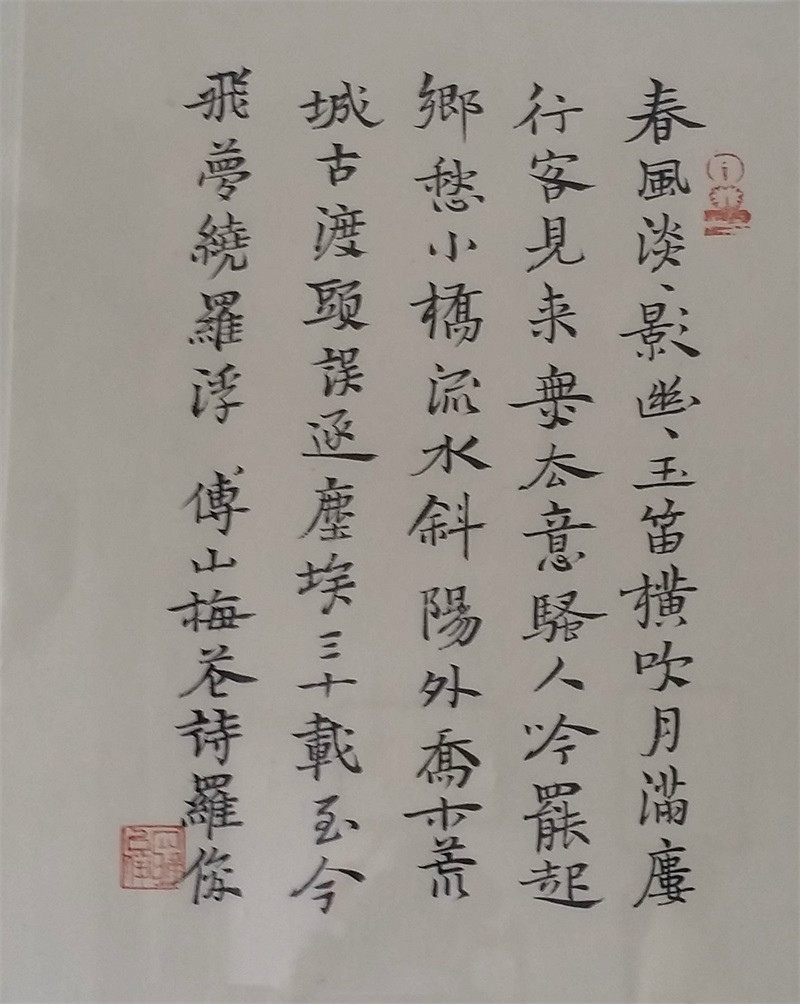 春風淡、影幽、玉笛橫吹月滿廔
行客見来無厺意騷人吟罷起
鄉愁小橋流水斜陽外喬木荒
城古渡頭誤逐塵埃三十載至今
飛夢繞羅浮 傅山梅花詩羅俊